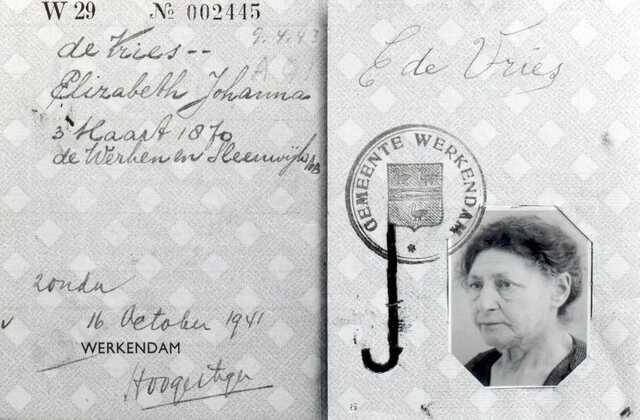 W 29 № 002445
de Vries--
9.4.43
Elizabeth Johanna
3 Maart 1870
de Werken en Sleeuwijk NB
zonder
16 October 1941
WERKENDAM
E de Vries
GEMEENTE WERKENDAM